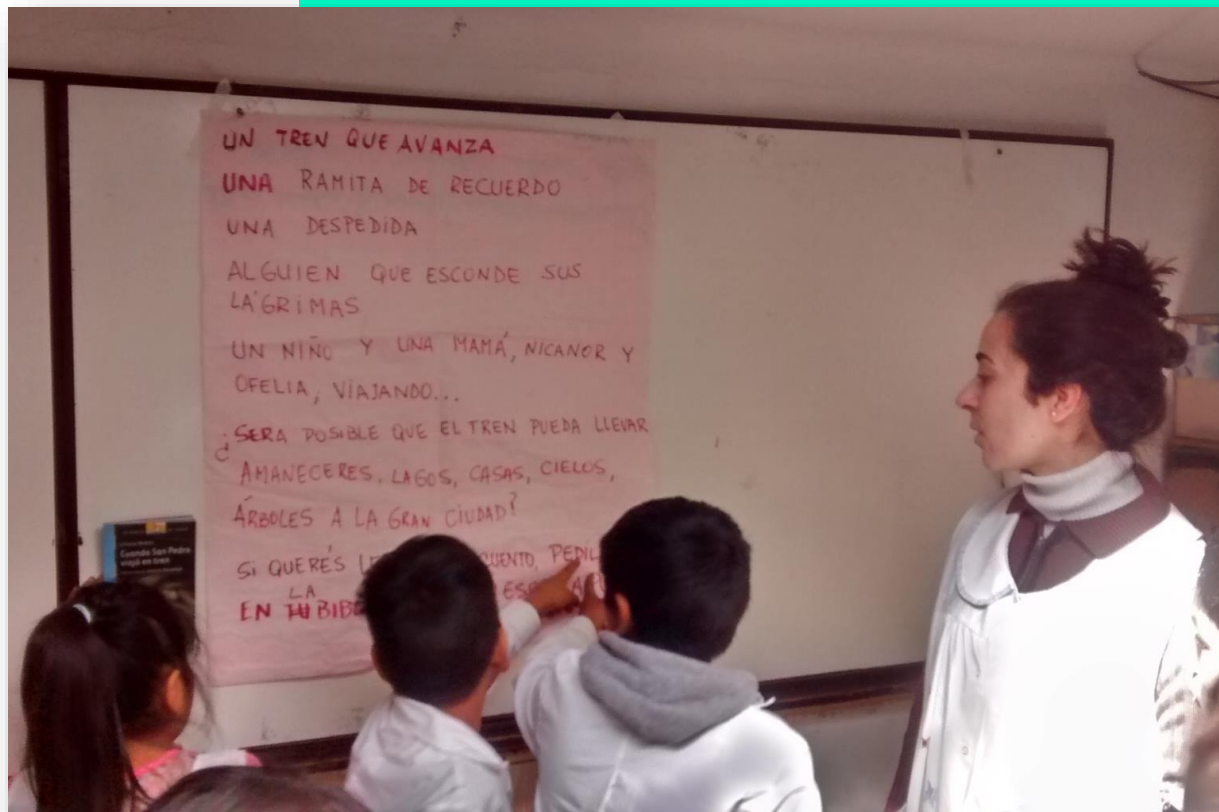 UN TREN QUE AVANZA
UNA RAMITA DE RECUERDO
UNA DESPEDIDA
ALGUIEN QUE ESCONDE SUS
LÁGRIMAS
UN NIÑO Y UNA MAMÁ, NICANOR Y
OFELIA, VIAJANDO...
¿SERA POSIBLE QUE EL TREN PUEDA LLEVAR
AMANECERES, LAGOS, CASAS, CIELOS,
ÁRBOLES A LA GRAN CIUDAD?
SI QUERÉS CUENTO,
LA
EN TU
Cuando San Pedro
viajó en tren